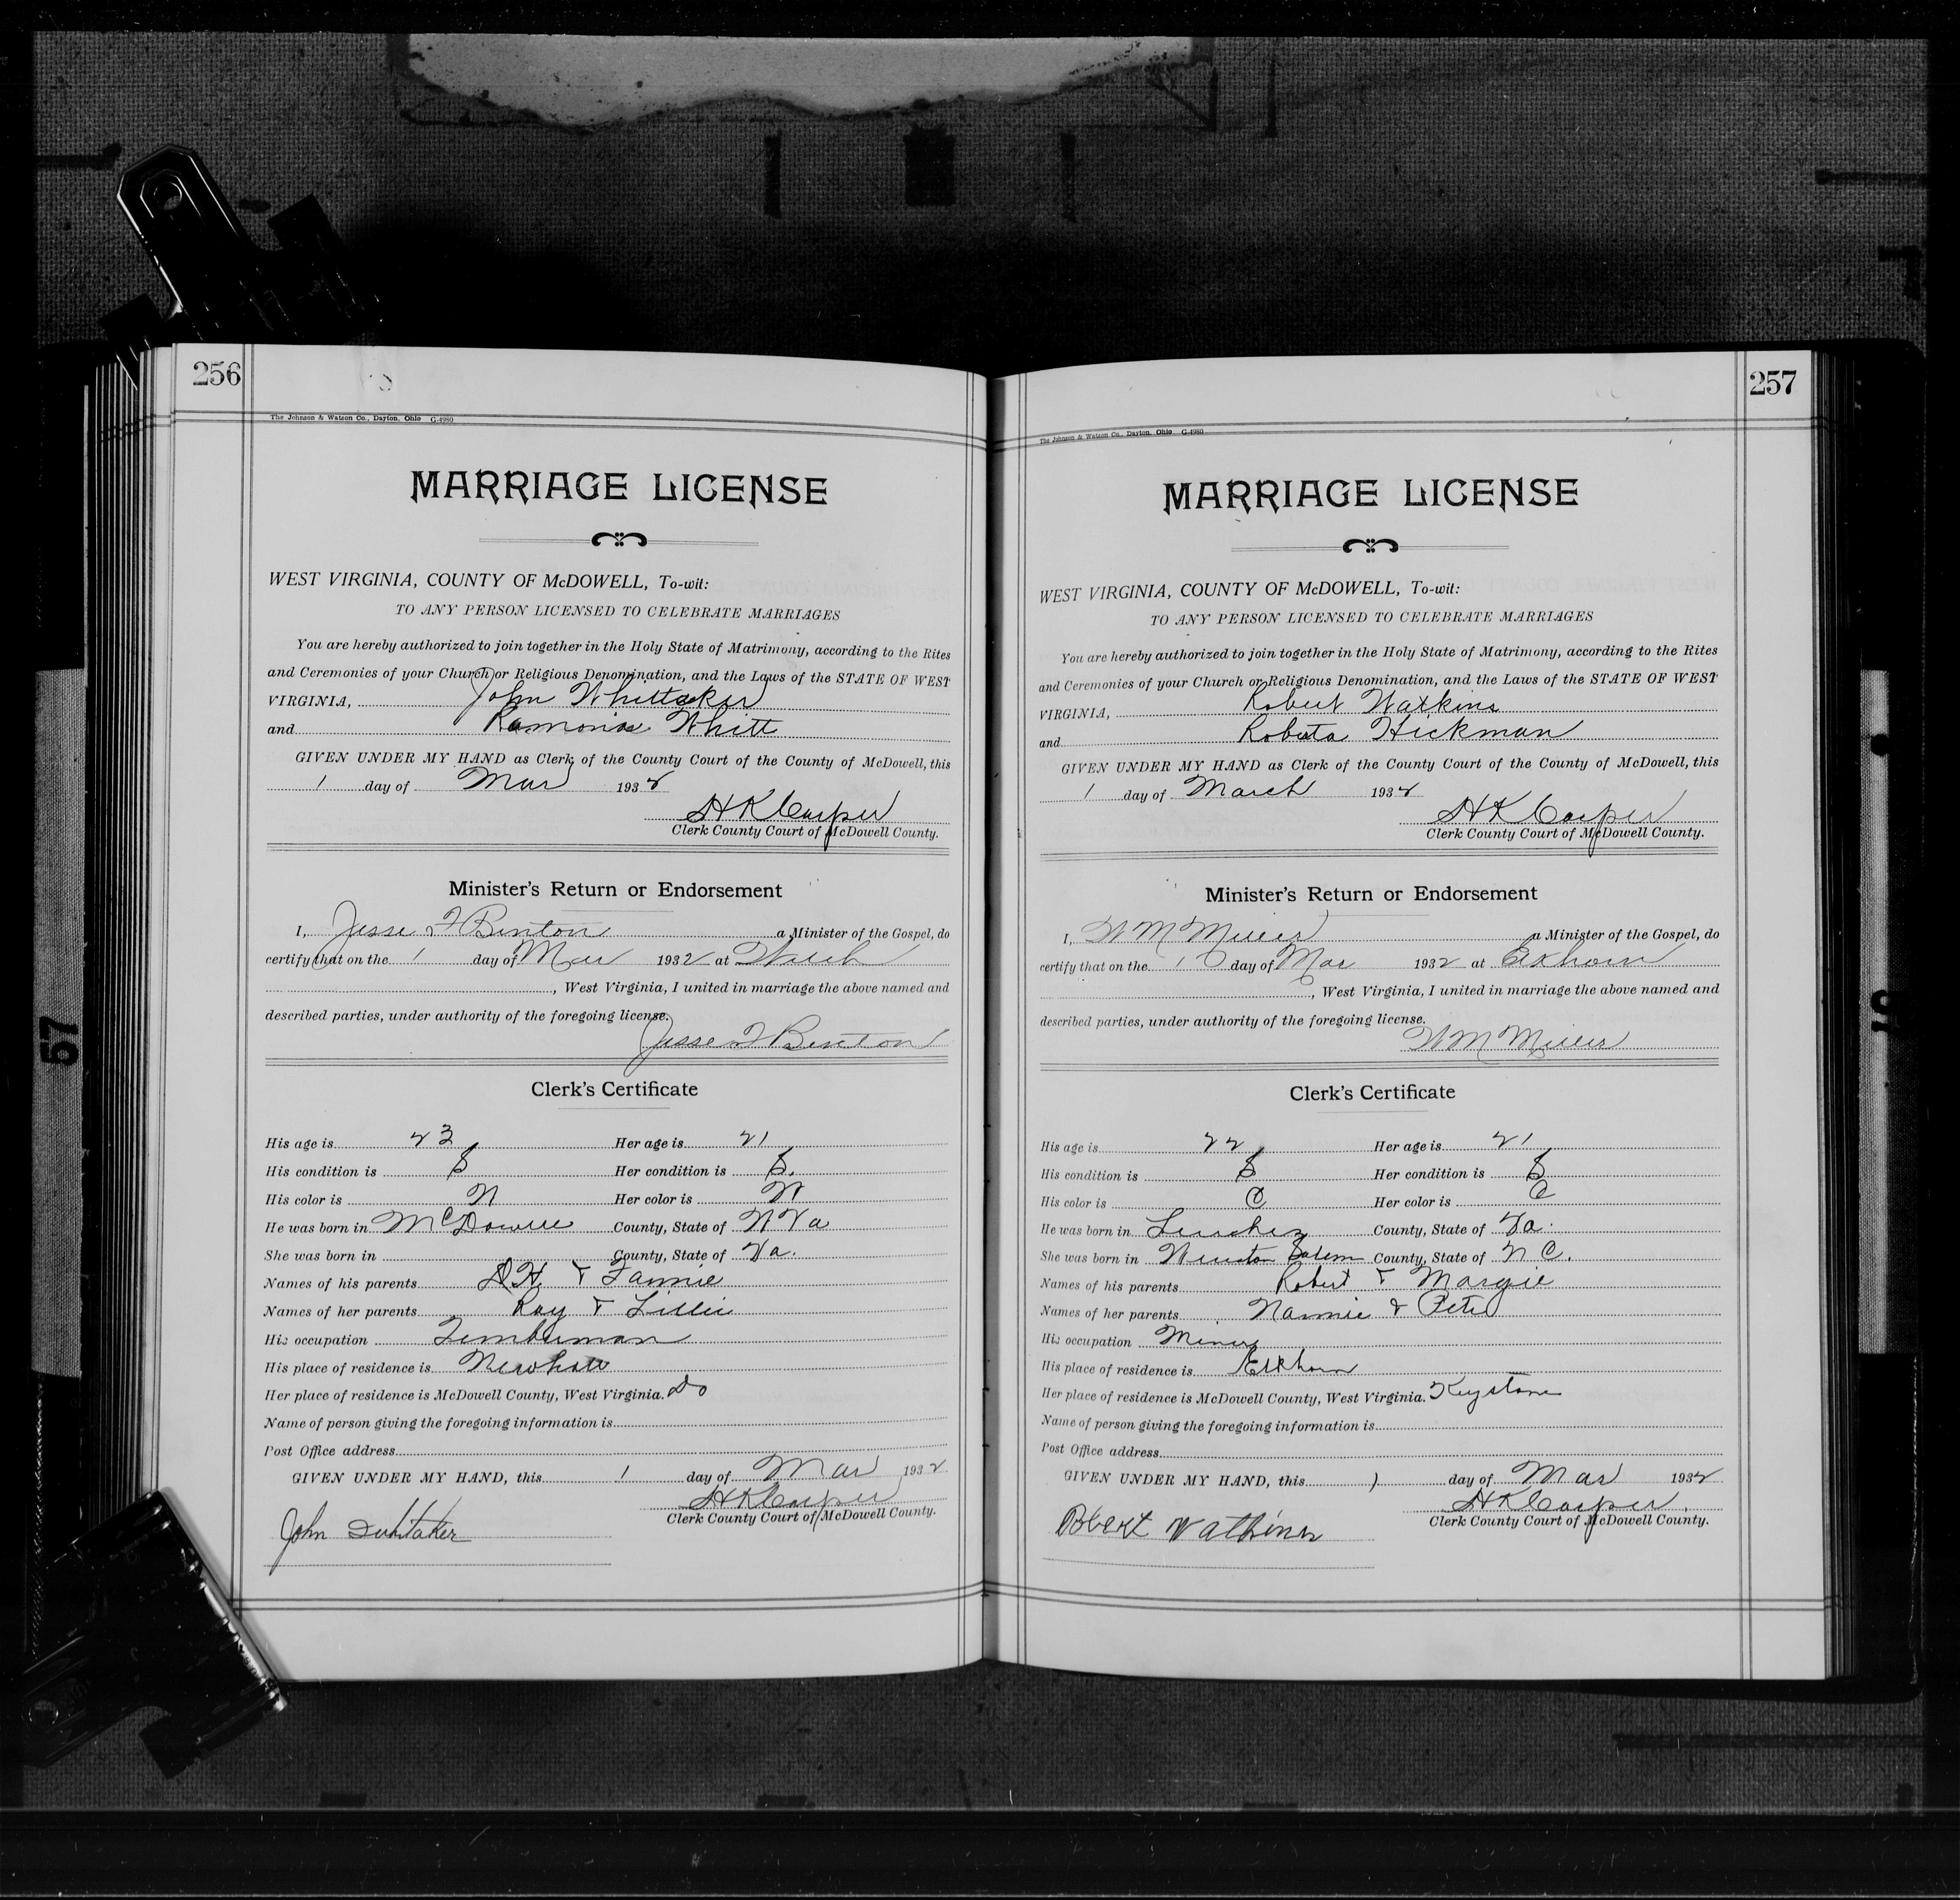 256
The Johnson & Watson Co., Dayton, Ohio G-4980
MARRIAGE LICENSE
WEST VIRGINIA, COUNTY OF McDOWELL, To-wit:
TO ANY PERSON LICENSED TO CELEBRATE MARRIAGES
You are hereby authorized to join together in the Holy State of Matrimony, according to the Rites
and Ceremonies of your Church or Religious Denomination, and the Laws of the STATE OF WEST
VIRGINIA, John Whittaker
and Ramonia Whitt
GIVEN UNDER MY HAND as Clerk of the County Court of the County of McDowell, this
1 day of Mar 1932
H K Carper
Clerk County Court of McDowell County.
Minister's Return or Endorsement
I, Jesse F Benton a Minister of the Gospel, do
certify that on the 1 day of Mar 1932 at Welch
, West Virginia, I united in marriage the above named and
described parties, under authority of the foregoing license.
Jesse F Benton
Clerk's Certificate
His age is 23 Her age is 21
His condition is S Her condition is S.
His color is W Her color is W
He was born in McDowell County, State of W Va
She was born in County, State of Va.
Names of his parents D H & Fannie
Names of her parents Roy & Lillie
His occupation Timberman
His place of residence is Newhall
Her place of residence is McDowell County, West Virginia. Do
Name of person giving the foregoing information is
Post Office address
GIVEN UNDER MY HAND, this 1 day of Mar 1932
H K Carper
Clerk County Court of McDowell County.
John Whitaker
257
The Johnson & Watson Co., Dayton, Ohio G-4980
MARRIAGE LICENSE
WEST VIRGINIA, COUNTY OF McDOWELL, To-wit:
TO ANY PERSON LICENSED TO CELEBRATE MARRIAGES
You are hereby authorized to join together in the Holy State of Matrimony, according to the Rites
and Ceremonies of your Church or Religious Denomination, and the Laws of the STATE OF WEST
VIRGINIA, Robert Watkins
and Roberta Hickman
GIVEN UNDER MY HAND as Clerk of the County Court of the County of McDowell, this
1 day of March 1932
H K Carper
Clerk County Court of McDowell County.
Minister's Return or Endorsement
I, W M Miller a Minister of the Gospel, do
certify that on the 10 day of Mar 1932 at Elkhorn
, West Virginia, I united in marriage the above named and
described parties, under authority of the foregoing license.
W M Miller
Clerk's Certificate
His age is 22 Her age is 21
His condition is S Her condition is S
His color is C Her color is C
He was born in County, State of Va.
She was born in Winston Salem County, State of N C.
Names of his parents Robert & Margie
Names of her parents Nannie & Pete
His occupation Miner
His place of residence is Elkhorn
Her place of residence is McDowell County, West Virginia. Keystone
Name of person giving the foregoing information is
Post Office address
GIVEN UNDER MY HAND, this 1 day of Mar 1932
H K Carper
Clerk County Court of McDowell County.
Robert Watkins
57